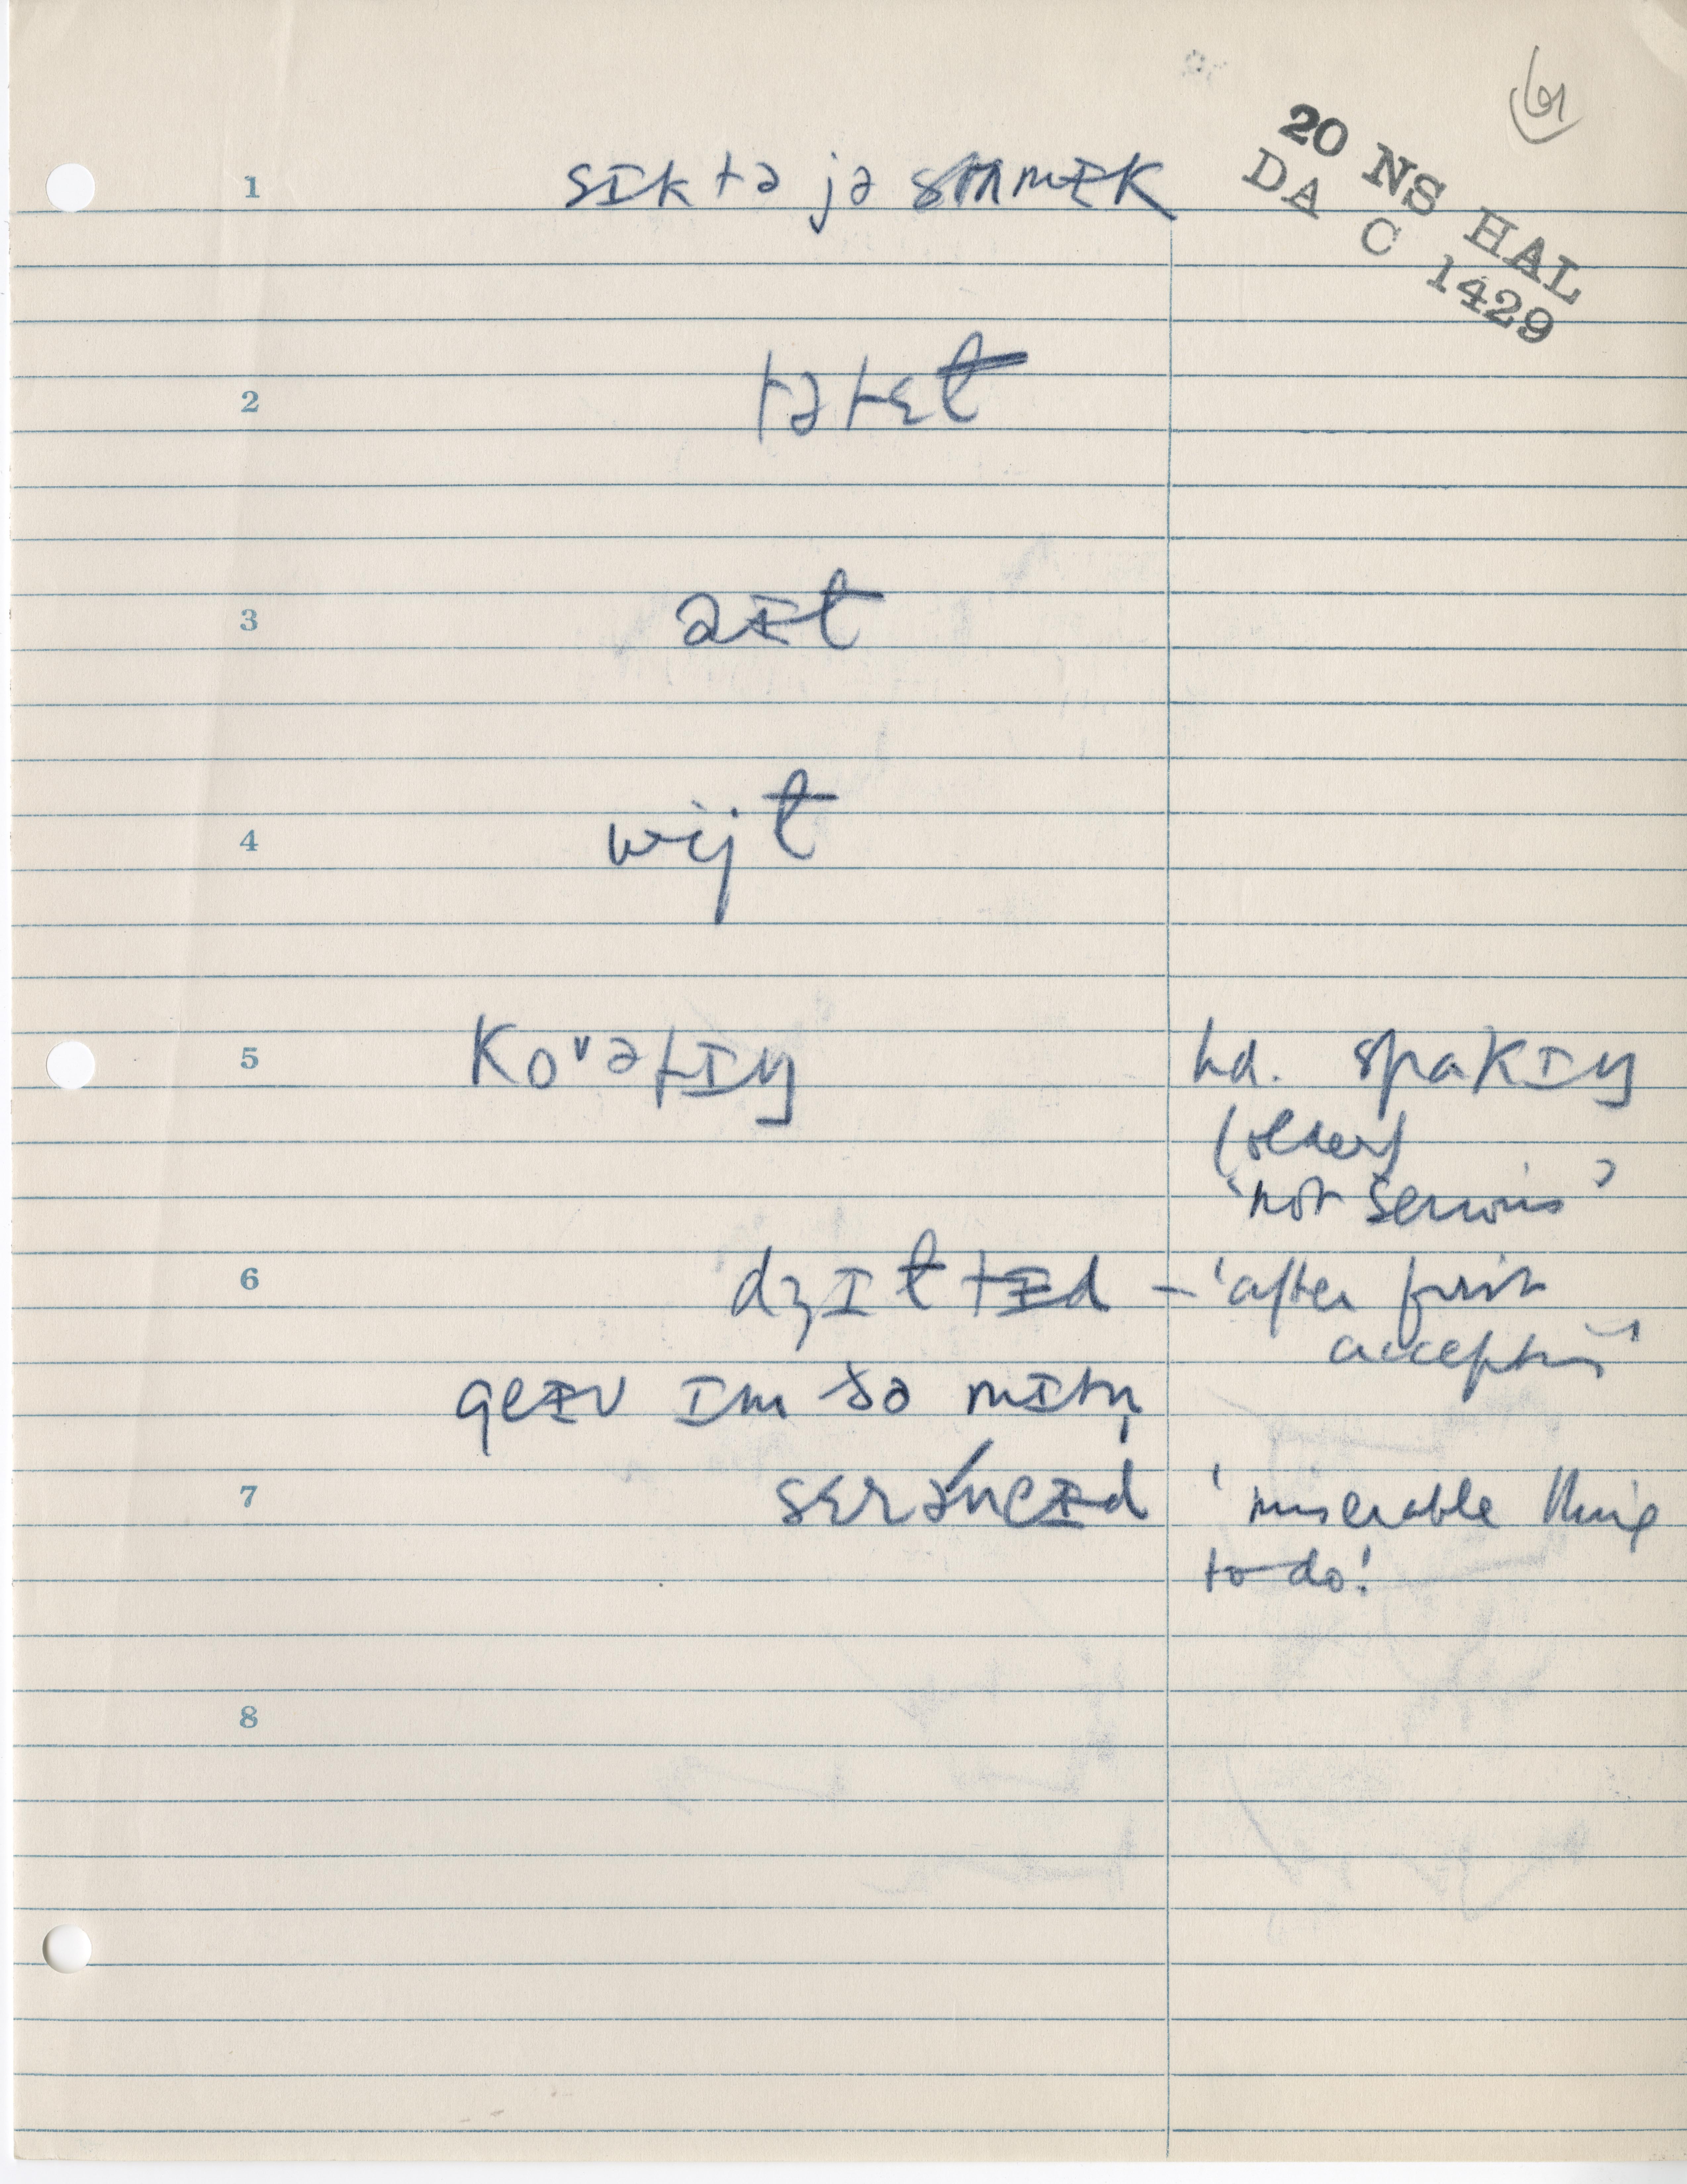 61
20 NS HAL
DA C 1429
1 sɪk tə jə stʌmɪk
2 tə tɛt̬
3 ət
4 wijt̬
5 koᵛətɪŋ hd. spakɪŋ
(older)
'not serious'
6 dʒɪt̬tɪd – 'after first
acceptn'
geɪv ɪm ðə mɪtn̩
7 serə́ncɪd 'miserable thing
to do!
8